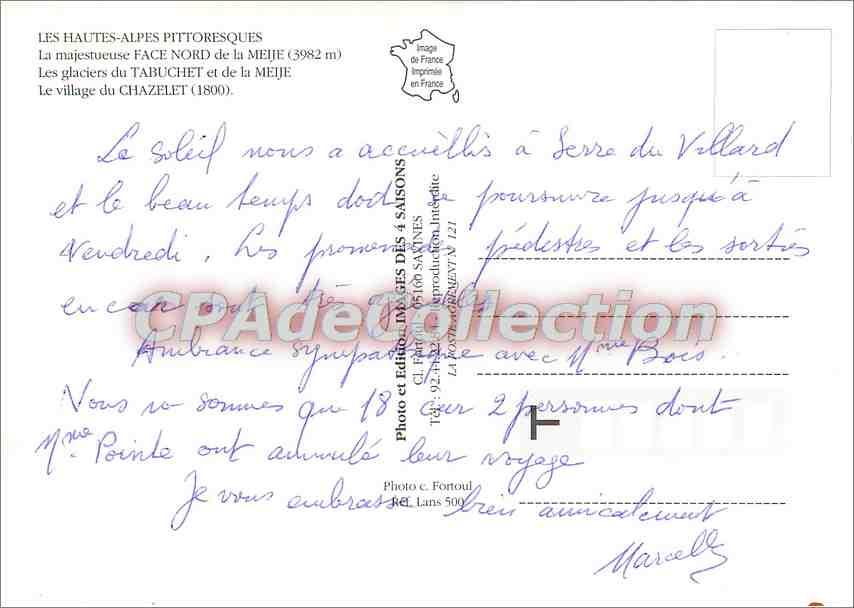 LES HAUTES-ALPES PITTORESQUES
La majestueuse FACE NORD de la MEIJE (3982 m)
Les glaciers du TABUCHET et de la MEIJE
Le village du CHAZELET (1800).
Image
de France
Imprimée
en France
Le soleil nous a accuellis à Serre du Villard
et le beau temps doit se poursuivre jusqu'à
Vendredi. Les promenades pédestres et les sorties
en car sont
CPAdeCollection
Ambiance sympathique avec Mme Bois.
Vous ne sommes que 18 car 2 personnes dont
Mme Pointe ont annulé leur voyage
Je vous embrasse bien amicalement
Marcelle
Photo et Edition IMAGES DES 4 SAISONS
Cl. Fortoul - 05160 SAVINES
Reproduction Interdite
LA POSTE AGREMENT N° 121
Photo c. Fortoul
Réf. Lans 500